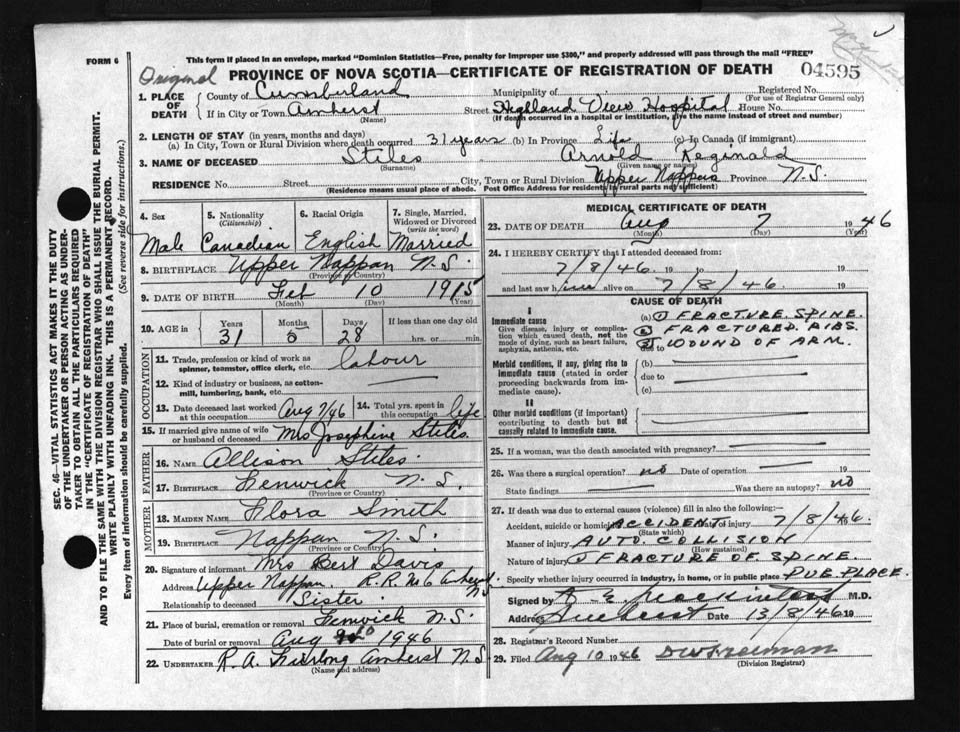 FORM 6
This form if placed in an envelope, marked "Dominion Statistics—Free, penalty for improper use $300," and properly addressed will pass through the mail "FREE"
Original PROVINCE OF NOVA SCOTIA—CERTIFICATE OF REGISTRATION OF DEATH 04595
1. PLACE OF DEATH
County of Cumberland Municipality of Registered No.
(For use of Registrar General only)
If in City or Town Amherst Street Highland View Hospital House No.
(Name) (If death occurred in a hospital or institution, give the name instead of street and number)
2. LENGTH OF STAY (in years, months and days)
(a) In City, Town or Rural Division where death occurred 31 years (b) In Province Life (c) In Canada (if immigrant)
3. NAME OF DECEASED Stiles Arnold Reginald
(Surname) (Given name or names)
RESIDENCE No. Street City, Town or Rural Division Upper Nappan Province N.S.
(Residence means usual place of abode. Post Office Address for residents in rural parts not sufficient)
4. Sex
Male
5. Nationality
(Citizenship)
Canadian
6. Racial Origin
English
7. Single, Married, Widowed or Divorced
(write the word)
Married
8. BIRTHPLACE Upper Nappan N.S.
(Province or Country)
9. DATE OF BIRTH Feb 10 1915
(Month) (Day) (Year)
10. AGE in
Years Months Days If less than one day old
31 5 28 hrs. or min.
OCCUPATION
11. Trade, profession or kind of work as spinner, teamster, office clerk, etc. labour
12. Kind of industry or business, as cotton-mill, lumbering, bank, etc.
13. Date deceased last worked at this occupation Aug 7/46
14. Total yrs. spent in this occupation life
15. If married give name of wife or husband of deceased Mrs Josephine Stiles
FATHER
16. NAME Allison Stiles
17. BIRTHPLACE Fenwick N.S.
(Province or Country)
MOTHER
18. MAIDEN NAME Flora Smith
19. BIRTHPLACE Nappan N.S.
(Province or Country)
20. Signature of informant Mrs Bert Davis
Address Upper Nappan. R.R. No 6 Amherst NS
Relationship to deceased Sister
21. Place of burial, cremation or removal Fenwick N.S.
Date of burial or removal Aug 1946
22. UNDERTAKER R.A. Furlong Amherst N.S
(Name and address)
MEDICAL CERTIFICATE OF DEATH
23. DATE OF DEATH Aug 7 1946
(Month) (Day) (Year)
24. I HEREBY CERTIFY that I attended deceased from:
7/8/46. 19 to 19
and last saw him alive on 7/8/46. 19
CAUSE OF DEATH
I
Immediate cause
Give disease, injury or complication which caused death, not the mode of dying, such as heart failure, asphyxia, asthenia, etc.
(a) 1 FRACTURE SPINE.
2 FRACTURED RIBS.
due to 3 WOUND OF ARM.
Morbid conditions, if any, giving rise to immediate cause (stated in order proceeding backwards from immediate cause).
(b)
due to
(c)
II
Other morbid conditions (if important) contributing to death but not causally related to immediate cause.
25. If a woman, was the death associated with pregnancy?
26. Was there a surgical operation? no Date of operation 19
State findings Was there an autopsy? no
27. If death was due to external causes (violence) fill in also the following:—
Accident, suicide or homicide ACCIDENT Date of injury 7/8/46. 19
(State which)
Manner of injury AUTO COLLISION
(How sustained)
Nature of injury 1 FRACTURE OF SPINE.
Specify whether injury occurred in industry, in home, or in public place PUB. PLACE.
Signed by M.D.
Address Amherst Date 13/8/46 19
28. Registrar's Record Number
29. Filed Aug 10 1946 DW Freeman
(Division Registrar)
SEC. 46—VITAL STATISTICS ACT MAKES IT THE DUTY
OF THE UNDERTAKER OR PERSON ACTING AS UNDER-
TAKER TO OBTAIN ALL THE PARTICULARS REQUIRED
IN THE "CERTIFICATE OF REGISTRATION OF DEATH"
AND TO FILE THE SAME WITH THE DIVISION REGISTRAR WHO SHALL ISSUE THE BURIAL PERMIT.
WRITE PLAINLY WITH UNFADING INK. THIS IS A PERMANENT RECORD.
Every item of information should be carefully supplied. (See reverse side for instructions.)